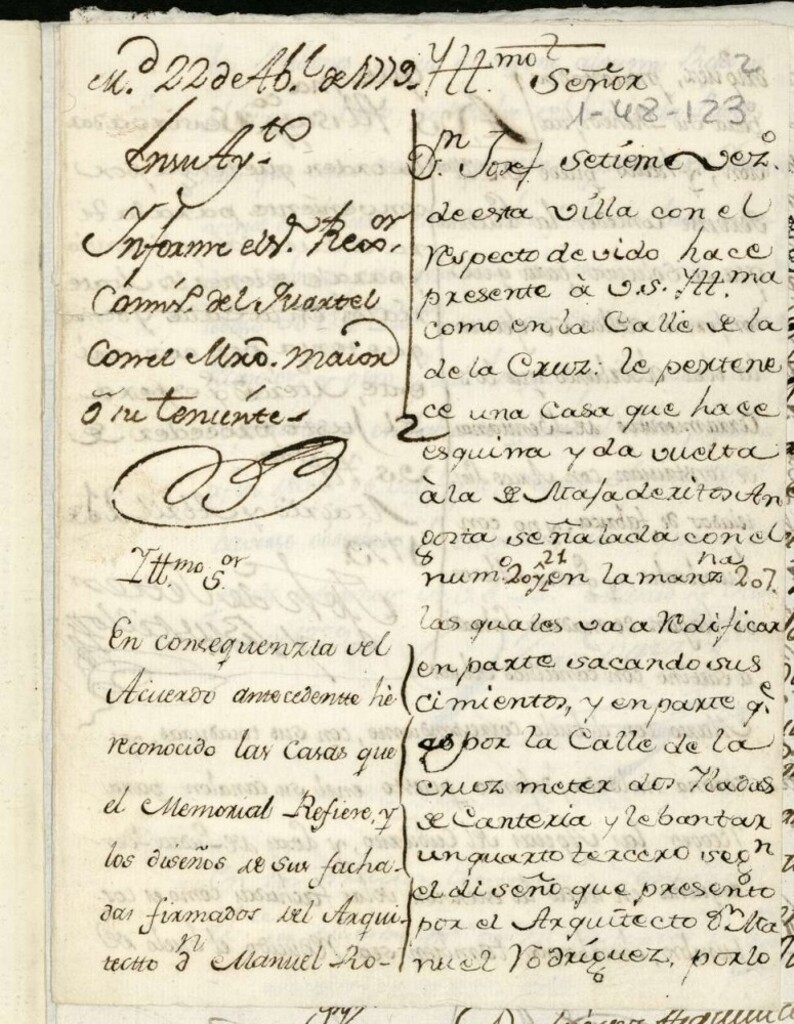 M.d 22 de Ab.l de 1779.
En su Ay.to
Informe el S.r Reg.or
Comis.o del Quartel
con el Mro. maior
ô su teniente.
Yll.mo S.or
En consequenzia del
Acuerdo antecedentte he
reconocido las Casas que
el Memorial Refiere, y
los diseños de sus facha-
das firmados del Arqui-
tectto d.n Manuel Ro-
2
Yll.mo Señor
1-48-123
D.n Josef Setieme vez.o
de esta villa con el
respecto devido hace
presente à V.S. Yll.ma
como en la Calle de la
de la Cruz: le pertene
ce una Casa que hace
esquina y da vuelta
à la de Majaderitos An
gosta señalada con el
num.o 20 y 21 en la manz.na 207.
las quales va a redificar
en parte sacando sus
cimientos, y en parte q.e
es por la Calle de la
Cruz meter dos Yladas
de Canteria y lebantar
un quarto tercero seg.n
el diseño que presento
por el Arquitecto d.n Ma
nuel Rodríguez, por lo